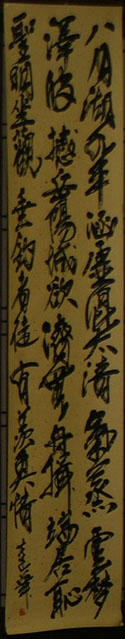 八月湖水平涵虛混太清氣蒸雲夢
澤波撼岳陽城欲濟無舟楫端居恥
聖明坐觀垂釣者徒有羨魚情